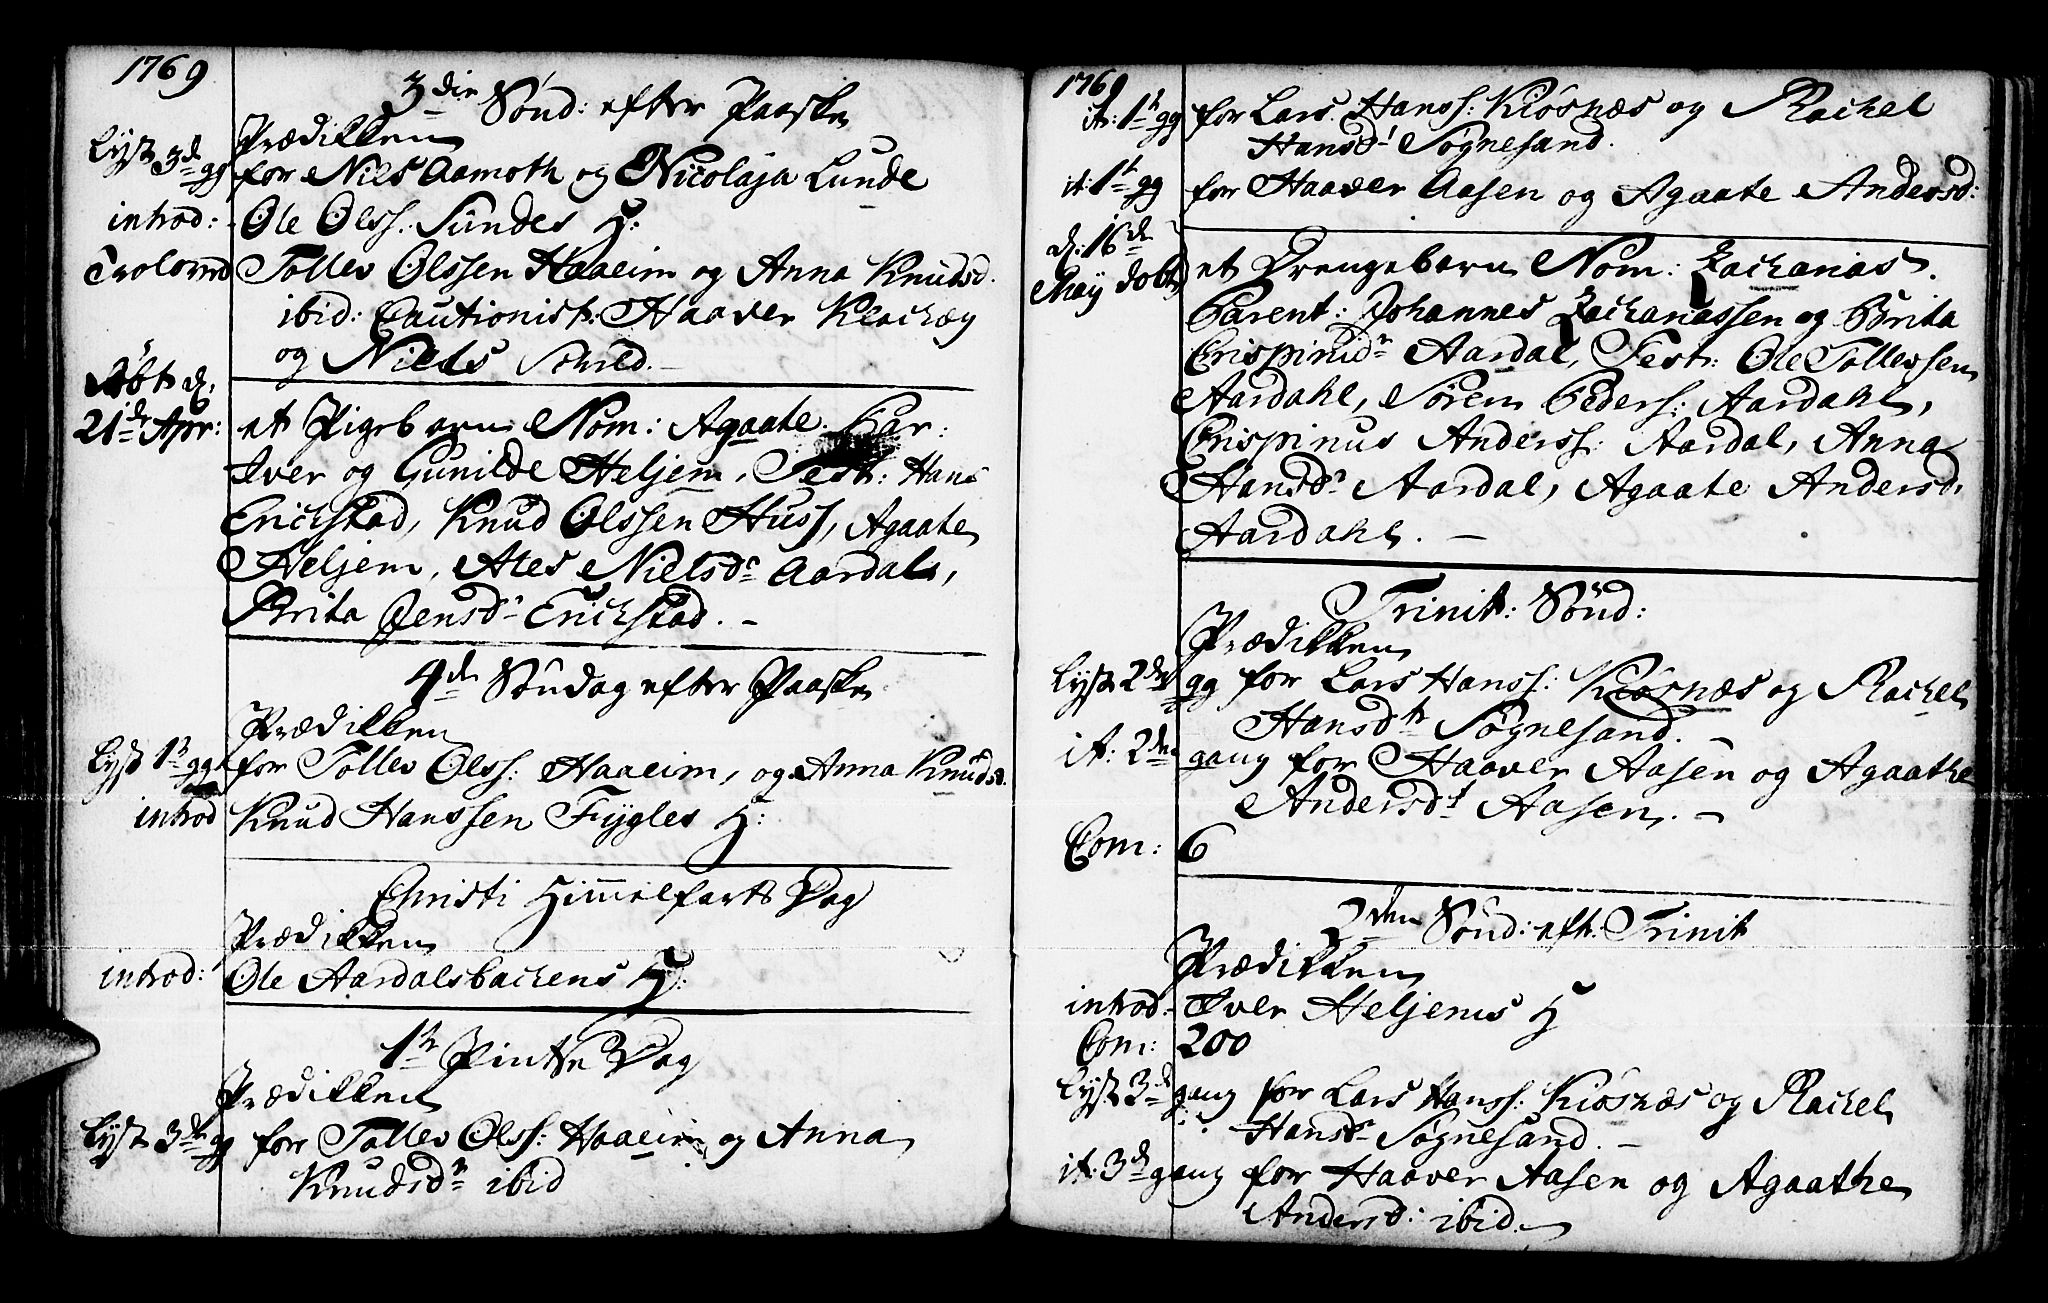 1769
3die Sönd: efter Paaske
Prædikken
Lyst 3de gg for Niels Aamoth og Nicolaja Lunde
introd: Ole Olss. Sundes H:
Troloved Tollev Olssen Haaeim og Anna Knudsd.
ibid: Cautionist: Haaver Klachæg
og Niels
Döbt d.
21de Apr: et Pigebarn Nom: Agaate. Par:
Iver og Gunilde Heljem, Test: Hans
Erichstad, Knud Olssen Huss, Agaate
Heljem, Ales Nielsdr Aardal,
Brita Jensdr Erichstad. -
4de Söndag efter Paaske
Prædikken
Lyst 1te gg for Tollev Olss: Haaeim, og Anna Knudsd.
introd Knud Hanssen Fygles H:
Christi Himmelfarts Dag
Prædikken
introd: Ole Aardalsbackens H:
1te Pintse Dag
Prædikken
Lyst 3de gg for Tollev Olss: Haaeim og Anna
Knudsdr ibid
1769
it: 1te gg for Lars Hanss: Kiösnæs og Rachel
Hansdr Søgnesand.
it: 1te gg for Haaver Aasen og Agaate Andersd:
d: 16de
May döbt et Drengebarn Nom: Zacharias.
Parent: Johannes Zachariassen og Brita
Crispinidr Aardal, Test: Ole Tollevsen
Aardahl, Sören Peders: Aardahl,
Crispinus Anderss: Aardal, Anna
Hansdr Aardal, Agaate Andersd.
Aardahl. -
Trinit: Sönd:
Prædikken
Lyst 2den gg for Lars Hanss: Kiösnæs og Rachel
Hansdtr Søgnesand. -
it: 2den gang for Haaver Aasen og Agaathe
Andersdr Aasen. -
Com: 6
2den Sönd: eft: Trinit
Prædikken
introd: Iver Heljems H
Com: 200
Lyst 3de gang for Lars Hanss: Kiösnæs og Rachel
Hansdr Søgnesand. -
it: 3de gang for Haaver Aasen og Agaathe
Andersd: ibid. -